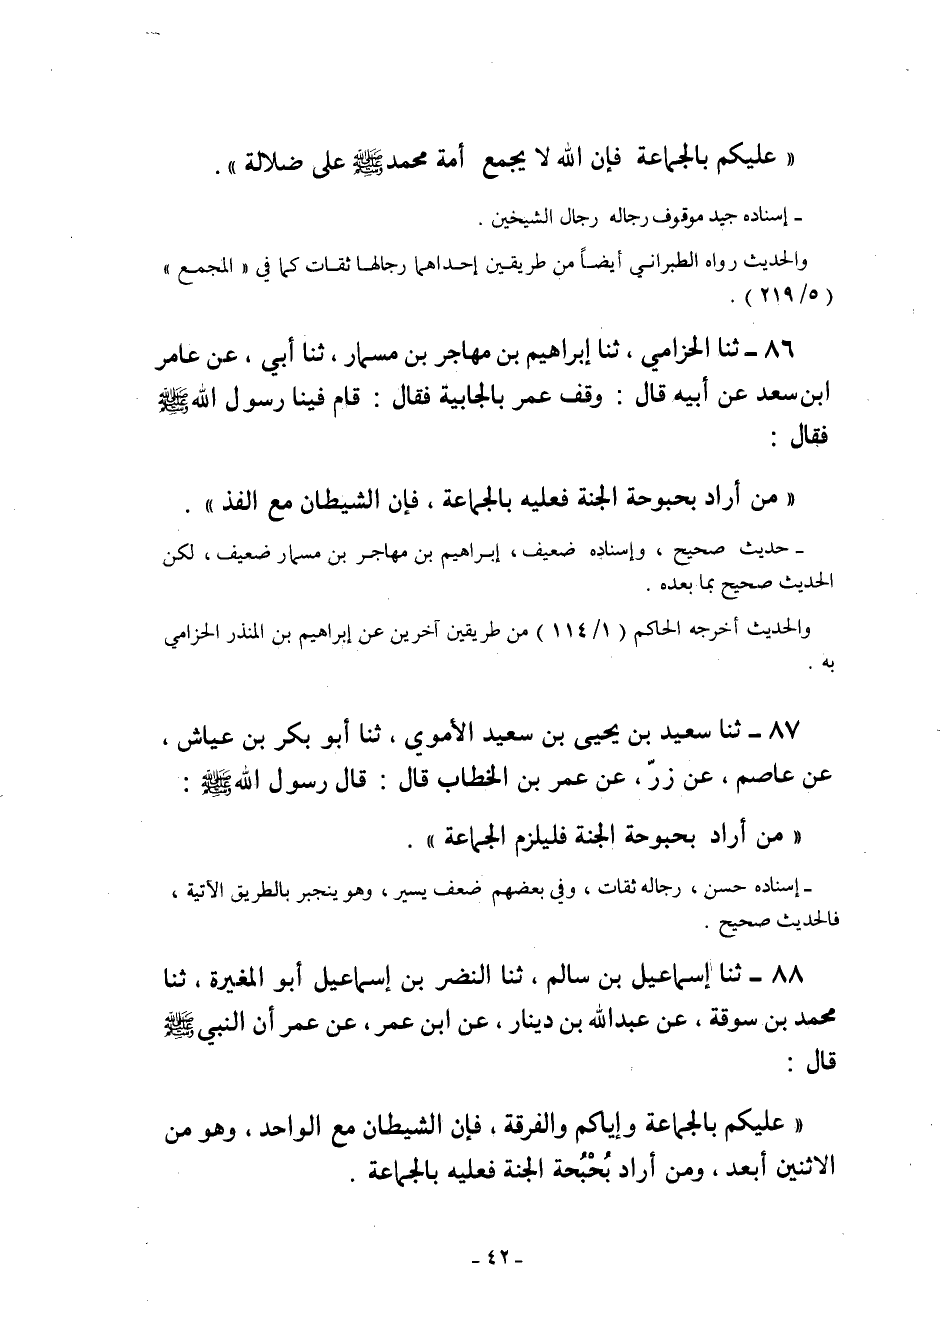 « عليكم بالجماعة فإن الله لا يجمع أمة محمد ﷺ على ضلالة » .
ـ إسناده جيد موقوف رجاله رجال الشيخين .
والحديث رواه الطبراني أيضاً من طريقين إحداهما رجالها ثقات كما في « المجمع »
( ٥/ ٢١٩ ) .
٨٦ ـ ثنا الحزامي ، ثنا إبراهيم بن مهاجر بن مسمار ، ثنا أبي ، عن عامر
ابن سعد عن أبيه قال : وقف عمر بالجابية فقال : قام فينا رسول الله ﷺ
فقال :
« من أراد بحبوحة الجنة فعليه بالجماعة ، فإن الشيطان مع الفذ » .
ـ حديث صحيح ، وإسناده ضعيف ، إبراهيم بن مهاجر بن مسمار ضعيف ، لكن
الحديث صحيح بما بعده .
والحديث أخرجه الحاكم ( ١/ ١١٤ ) من طريقين آخرين عن إبراهيم بن المنذر الحزامي
به .
٨٧ ـ ثنا سعيد بن يحيى بن سعيد الأموي ، ثنا أبو بكر بن عياش ،
عن عاصم ، عن زرّ ، عن عمر بن الخطاب قال : قال رسول الله ﷺ :
« من أراد بحبوحة الجنة فليلزم الجماعة » .
ـ إسناده حسن ، رجاله ثقات ، وفي بعضهم ضعف يسير ، وهو ينجبر بالطريق الآتية ،
فالحديث صحيح .
٨٨ ـ ثنا إسماعيل بن سالم ، ثنا النضر بن إسماعيل أبو المغيرة ، ثنا
محمد بن سوقة ، عن عبدالله بن دينار ، عن ابن عمر ، عن عمر أن النبي ﷺ
قال :
« عليكم بالجماعة وإياكم والفرقة ، فإن الشيطان مع الواحد ، وهو من
الاثنين أبعد ، ومن أراد بُحْبُحة الجنة فعليه بالجماعة .
- ٤٢ -